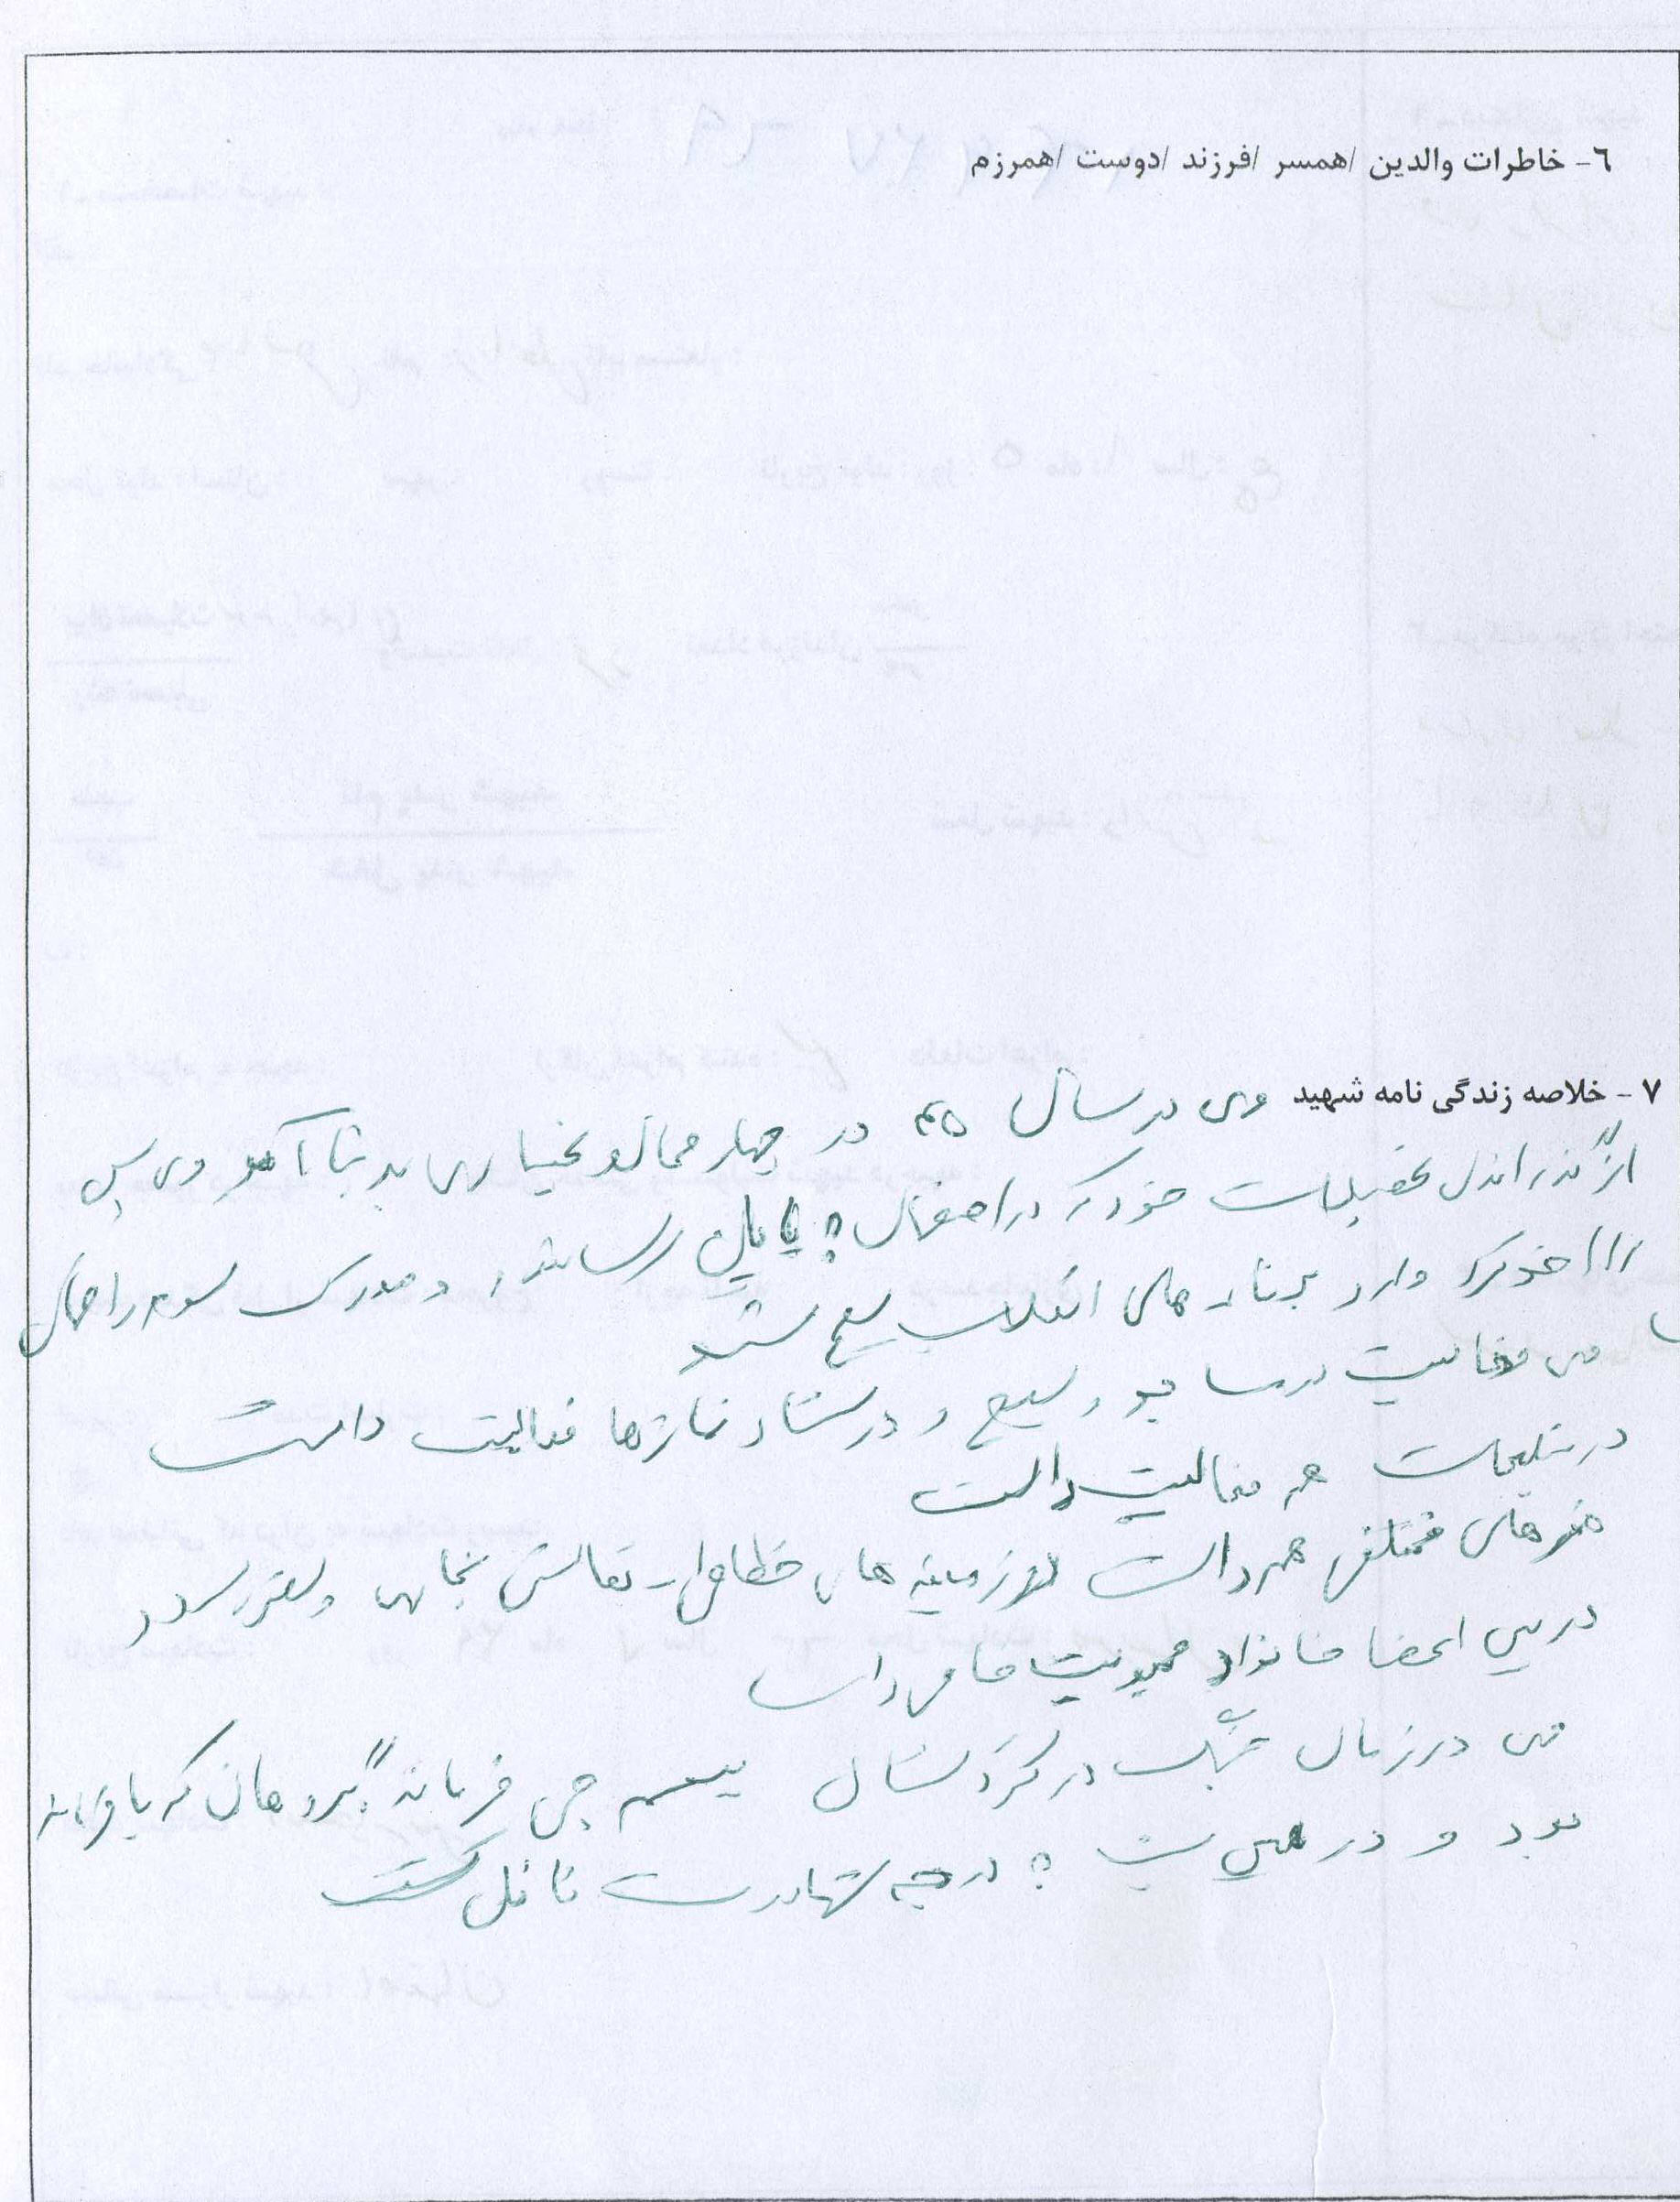 ٦- خاطرات والدین /همسر /فرزند /دوست /همرزم
٧- خلاصه زندگی نامه شهید وی در سال ۴۵ در چهارمحال و بختیاری به دنیا آمد وی پس
از گذراندن تحصیلات خود که در اصفهان به پایان رساند و مدرک سوم راهنمایی
را اخذ کرد وارد برنامه های انقلاب بسیج شد
وی فعالیت در مساجد و بسیج و در ستاد نمازها فعالیت داشت
در تبلیغات هم فعالیت داشت
هنرهای مختلفی هم داشت در زمینه های خطاطی - نقاشی نجاری و
در بین اعضا خانواده محبوبیت خاصی داشت
وی در زمان جنگ در کردستان بیسم چی فرمانده گردهان که با
بود و در همین به درجه شهادت نائل گشت